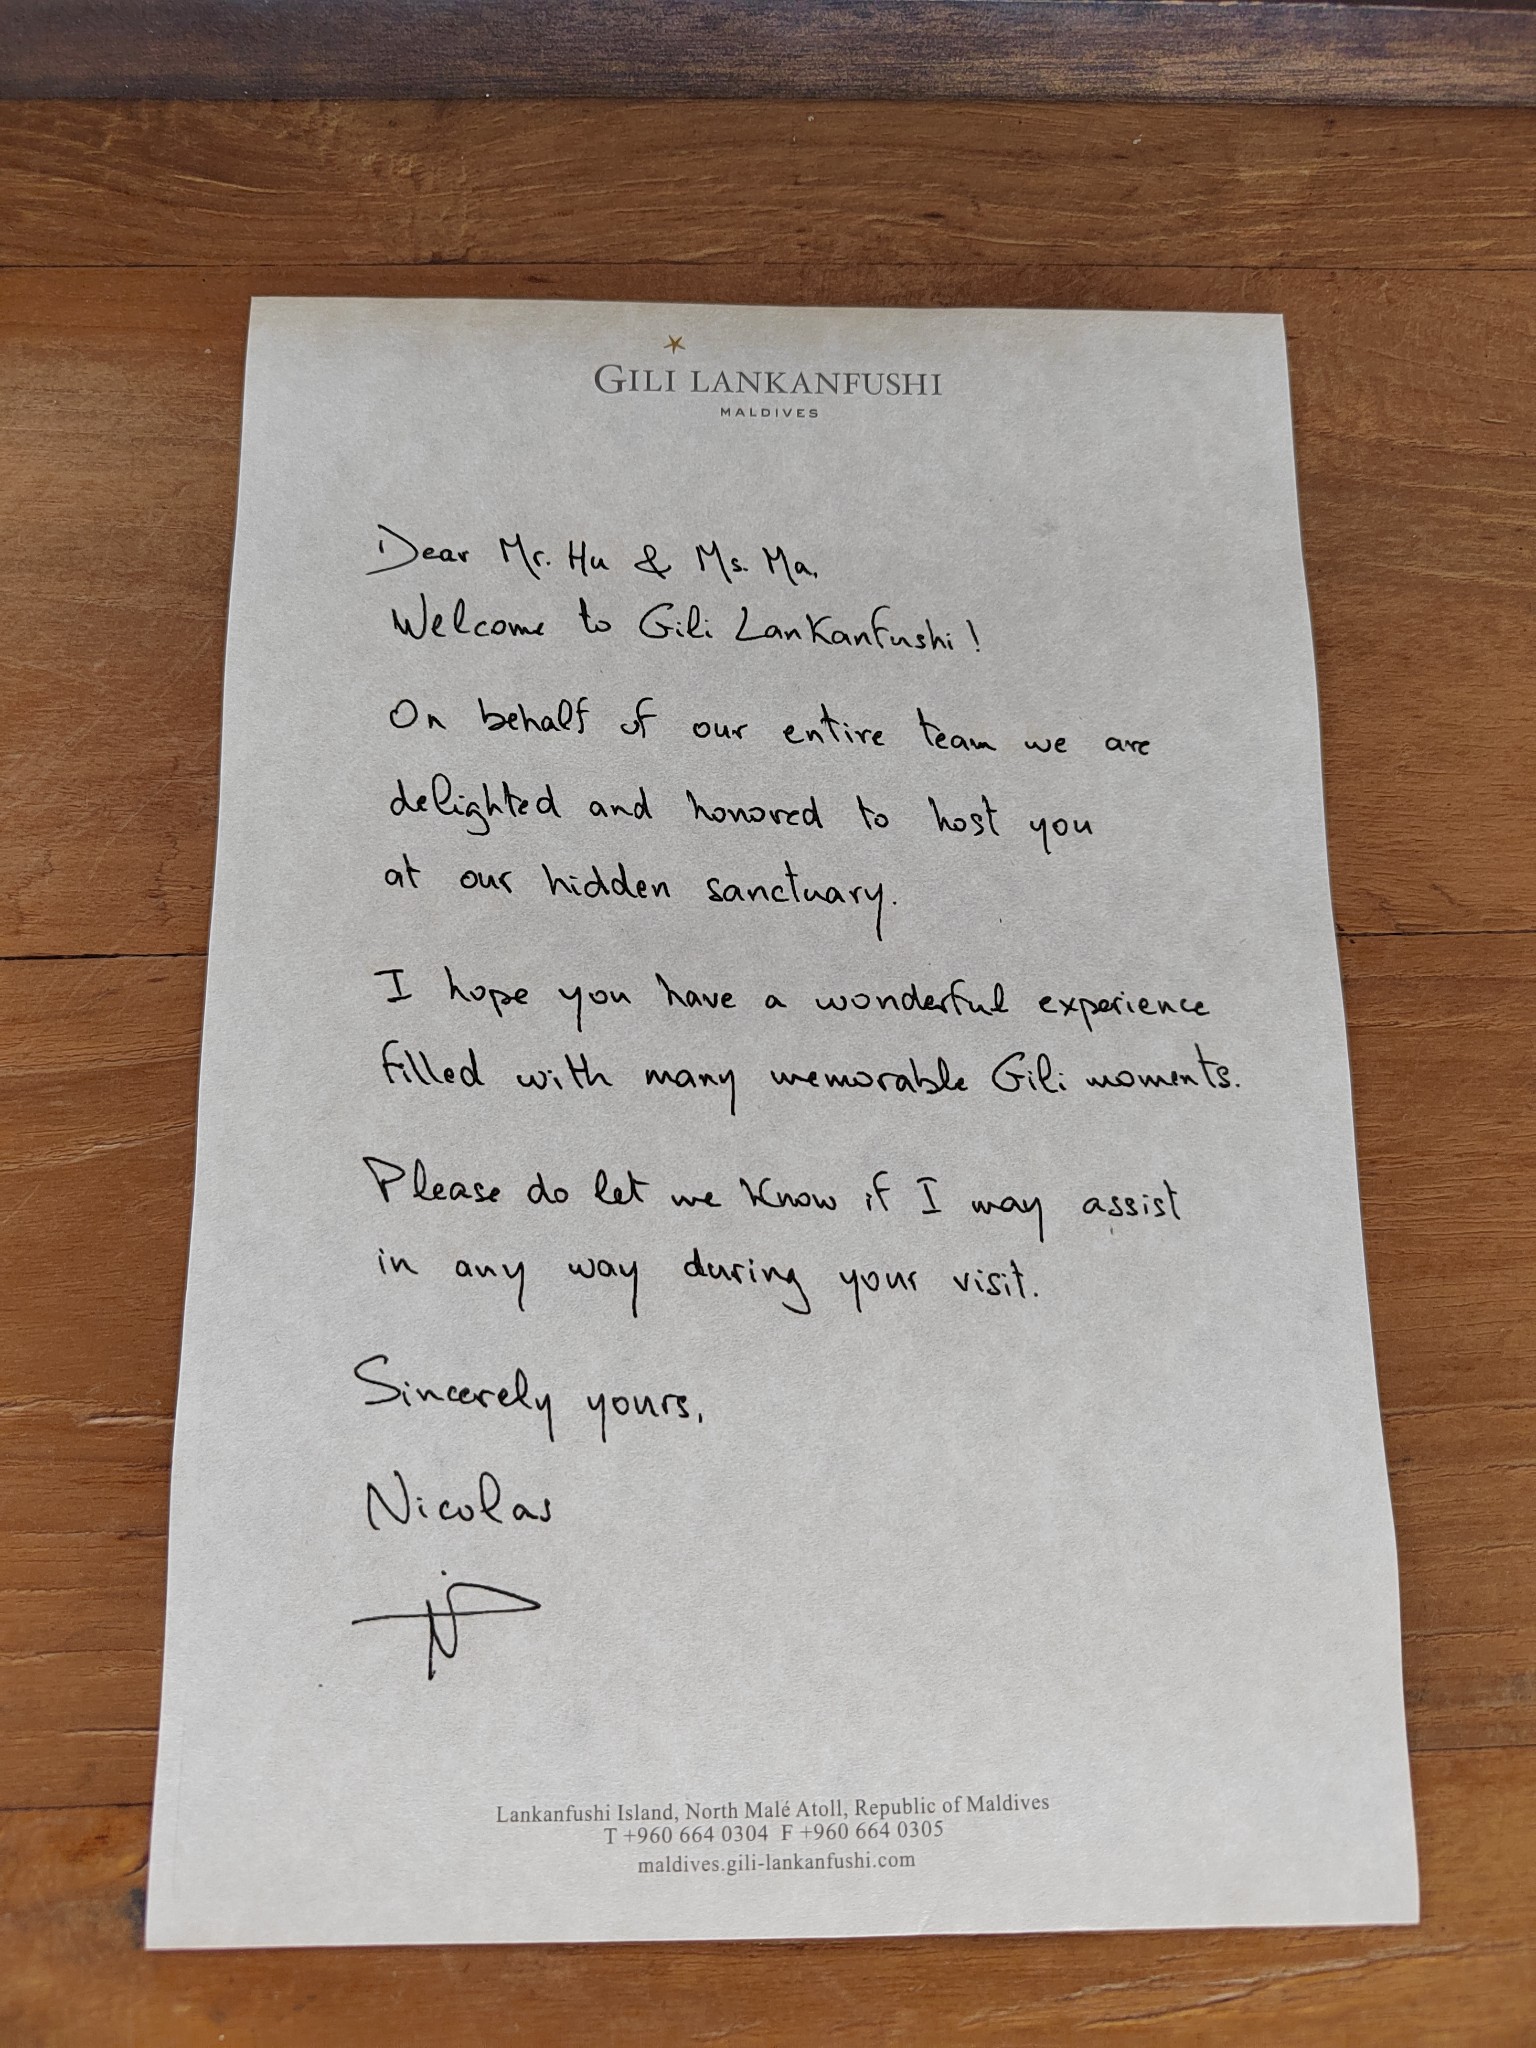 GILI LANKANFUSHI
MALDIVES
Dear Mr. Hu & Ms. Ma,
Welcome to Gili Lankanfushi!
On behalf of our entire team we are
delighted and honored to host you
at our hidden sanctuary.
I hope you have a wonderful experience
filled with many memorable Gili moments.
Please do let me know if I may assist
in any way during your visit.
Sincerely yours,
Nicolas
Lankanfushi Island, North Malé Atoll, Republic of Maldives
T +960 664 0304 F +960 664 0305
maldives.gili-lankanfushi.com